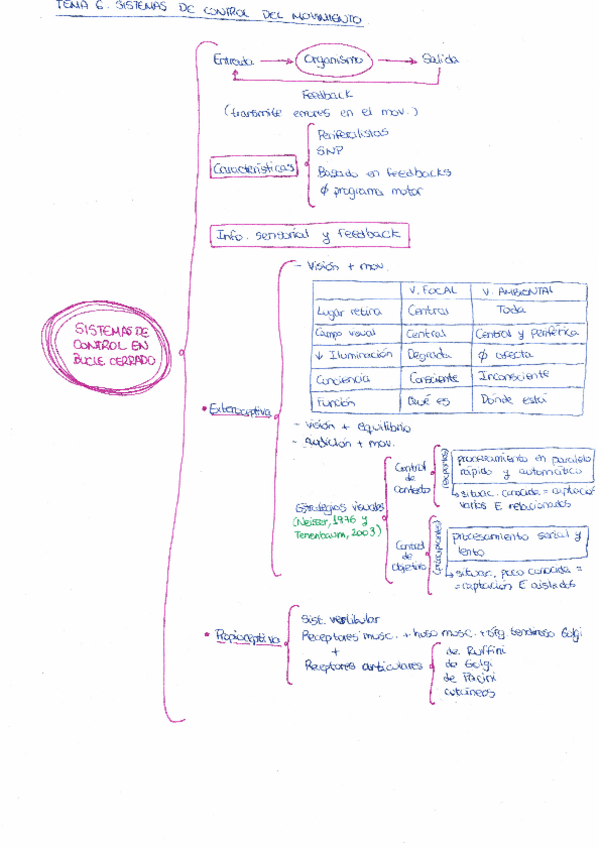 TEMA 6. SISTEMAS DE CONTROL DEL MOVIMIENTO
Entrada → Organismo → Salida
Feedback
(transmite errores en el mov.)
Características
Periferalistas
SNP
Basado en feedbacks
∅ programa motor
Info. sensorial y feedback
SISTEMAS DE
CONTROL EN
BUCLE CERRADO
• Exteroceptiva
- Visión + mov.
V. FOCAL V. AMBIENTAL
Lugar retina Central Toda
Campo visual Central Central y Periférica
↓ Iluminación Degrada ∅ afecta
Conciencia Consciente Inconsciente
Función Qué es Dónde está
- visión + equilibrio
- audición + mov.
Estrategias visuales
(Neisser, 1976 y
Tenenbaum, 2003)
Control
de
Contexto
(expertos)
procesamiento en paralelo
rápido y automático
↳ situac. conocida = captación
varios E relacionados
Control
de
Objetos
(principiantes)
procesamiento serial y
lento
↳ situac. poco conocida =
= captación E aislados
• Propioceptiva
Sist. vestibular
Receptores musc. + huso musc. + órg. tendinoso Golgi
+
Receptores articulares
de Ruffini
de Golgi
de Pacini
cutáneos